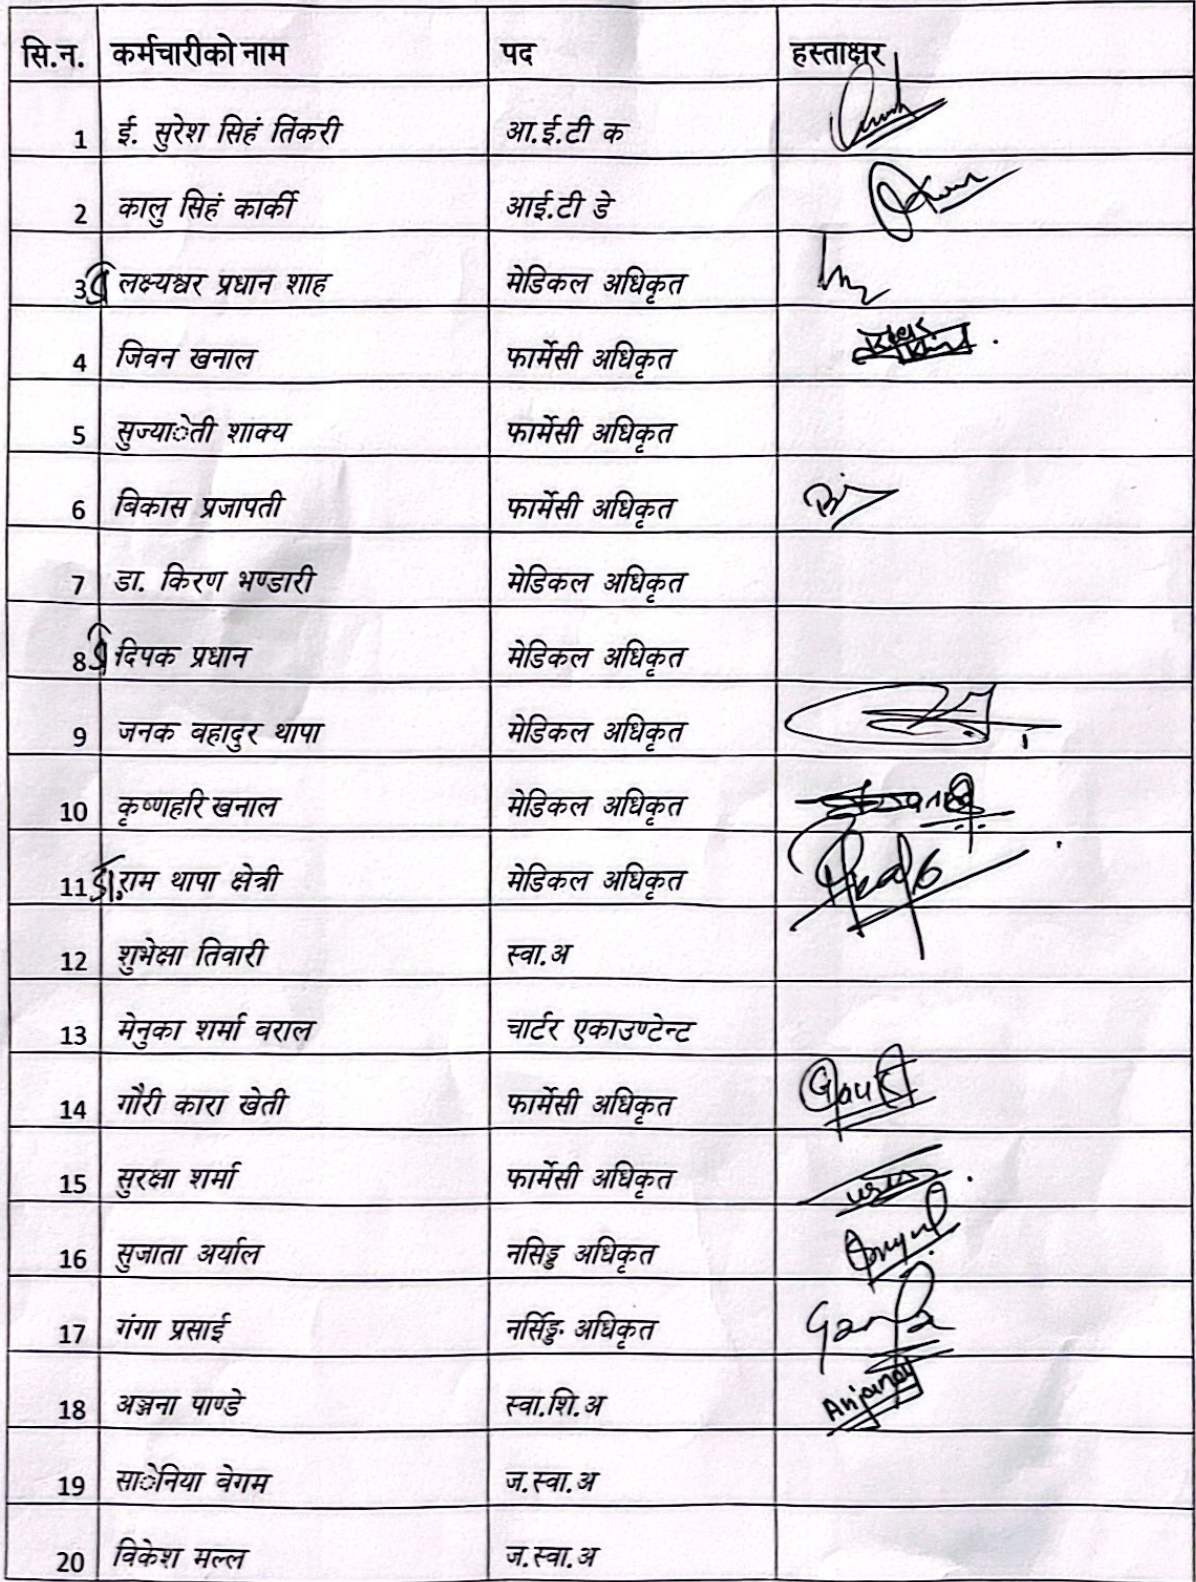 सि.न. कर्मचारीको नाम पद हस्ताक्षर
1 ई. सुरेश सिहं तिंकरी आ.ई.टी क
2 कालु सिहं कार्की आई.टी डे
3 लक्ष्यश्वर प्रधान शाह मेडिकल अधिकृत
4 जिवन खनाल फार्मेसी अधिकृत
5 सुज्याेती शाक्य फार्मेसी अधिकृत
6 बिकास प्रजापती फार्मेसी अधिकृत
7 डा. किरण भण्डारी मेडिकल अधिकृत
8 दिपक प्रधान मेडिकल अधिकृत
9 जनक वहादुर थापा मेडिकल अधिकृत
10 कृष्णहरि खनाल मेडिकल अधिकृत
11 डा. राम थापा क्षेत्री मेडिकल अधिकृत
12 शुभेक्षा तिवारी स्वा.अ
13 मेनुका शर्मा वराल चार्टर एकाउण्टेन्ट
14 गौरी कारा खेती फार्मेसी अधिकृत Gauri
15 सुरक्षा शर्मा फार्मेसी अधिकृत
16 सुजाता अर्याल नसिङ्ड अधिकृत
17 गंगा प्रसाई नर्सिङ्ड अधिकृत Ganga
18 अञ्जना पाण्डे स्वा.शि.अ Anjana
19 साेनिया वेगम ज.स्वा.अ
20 विकेश मल्ल ज.स्वा.अ